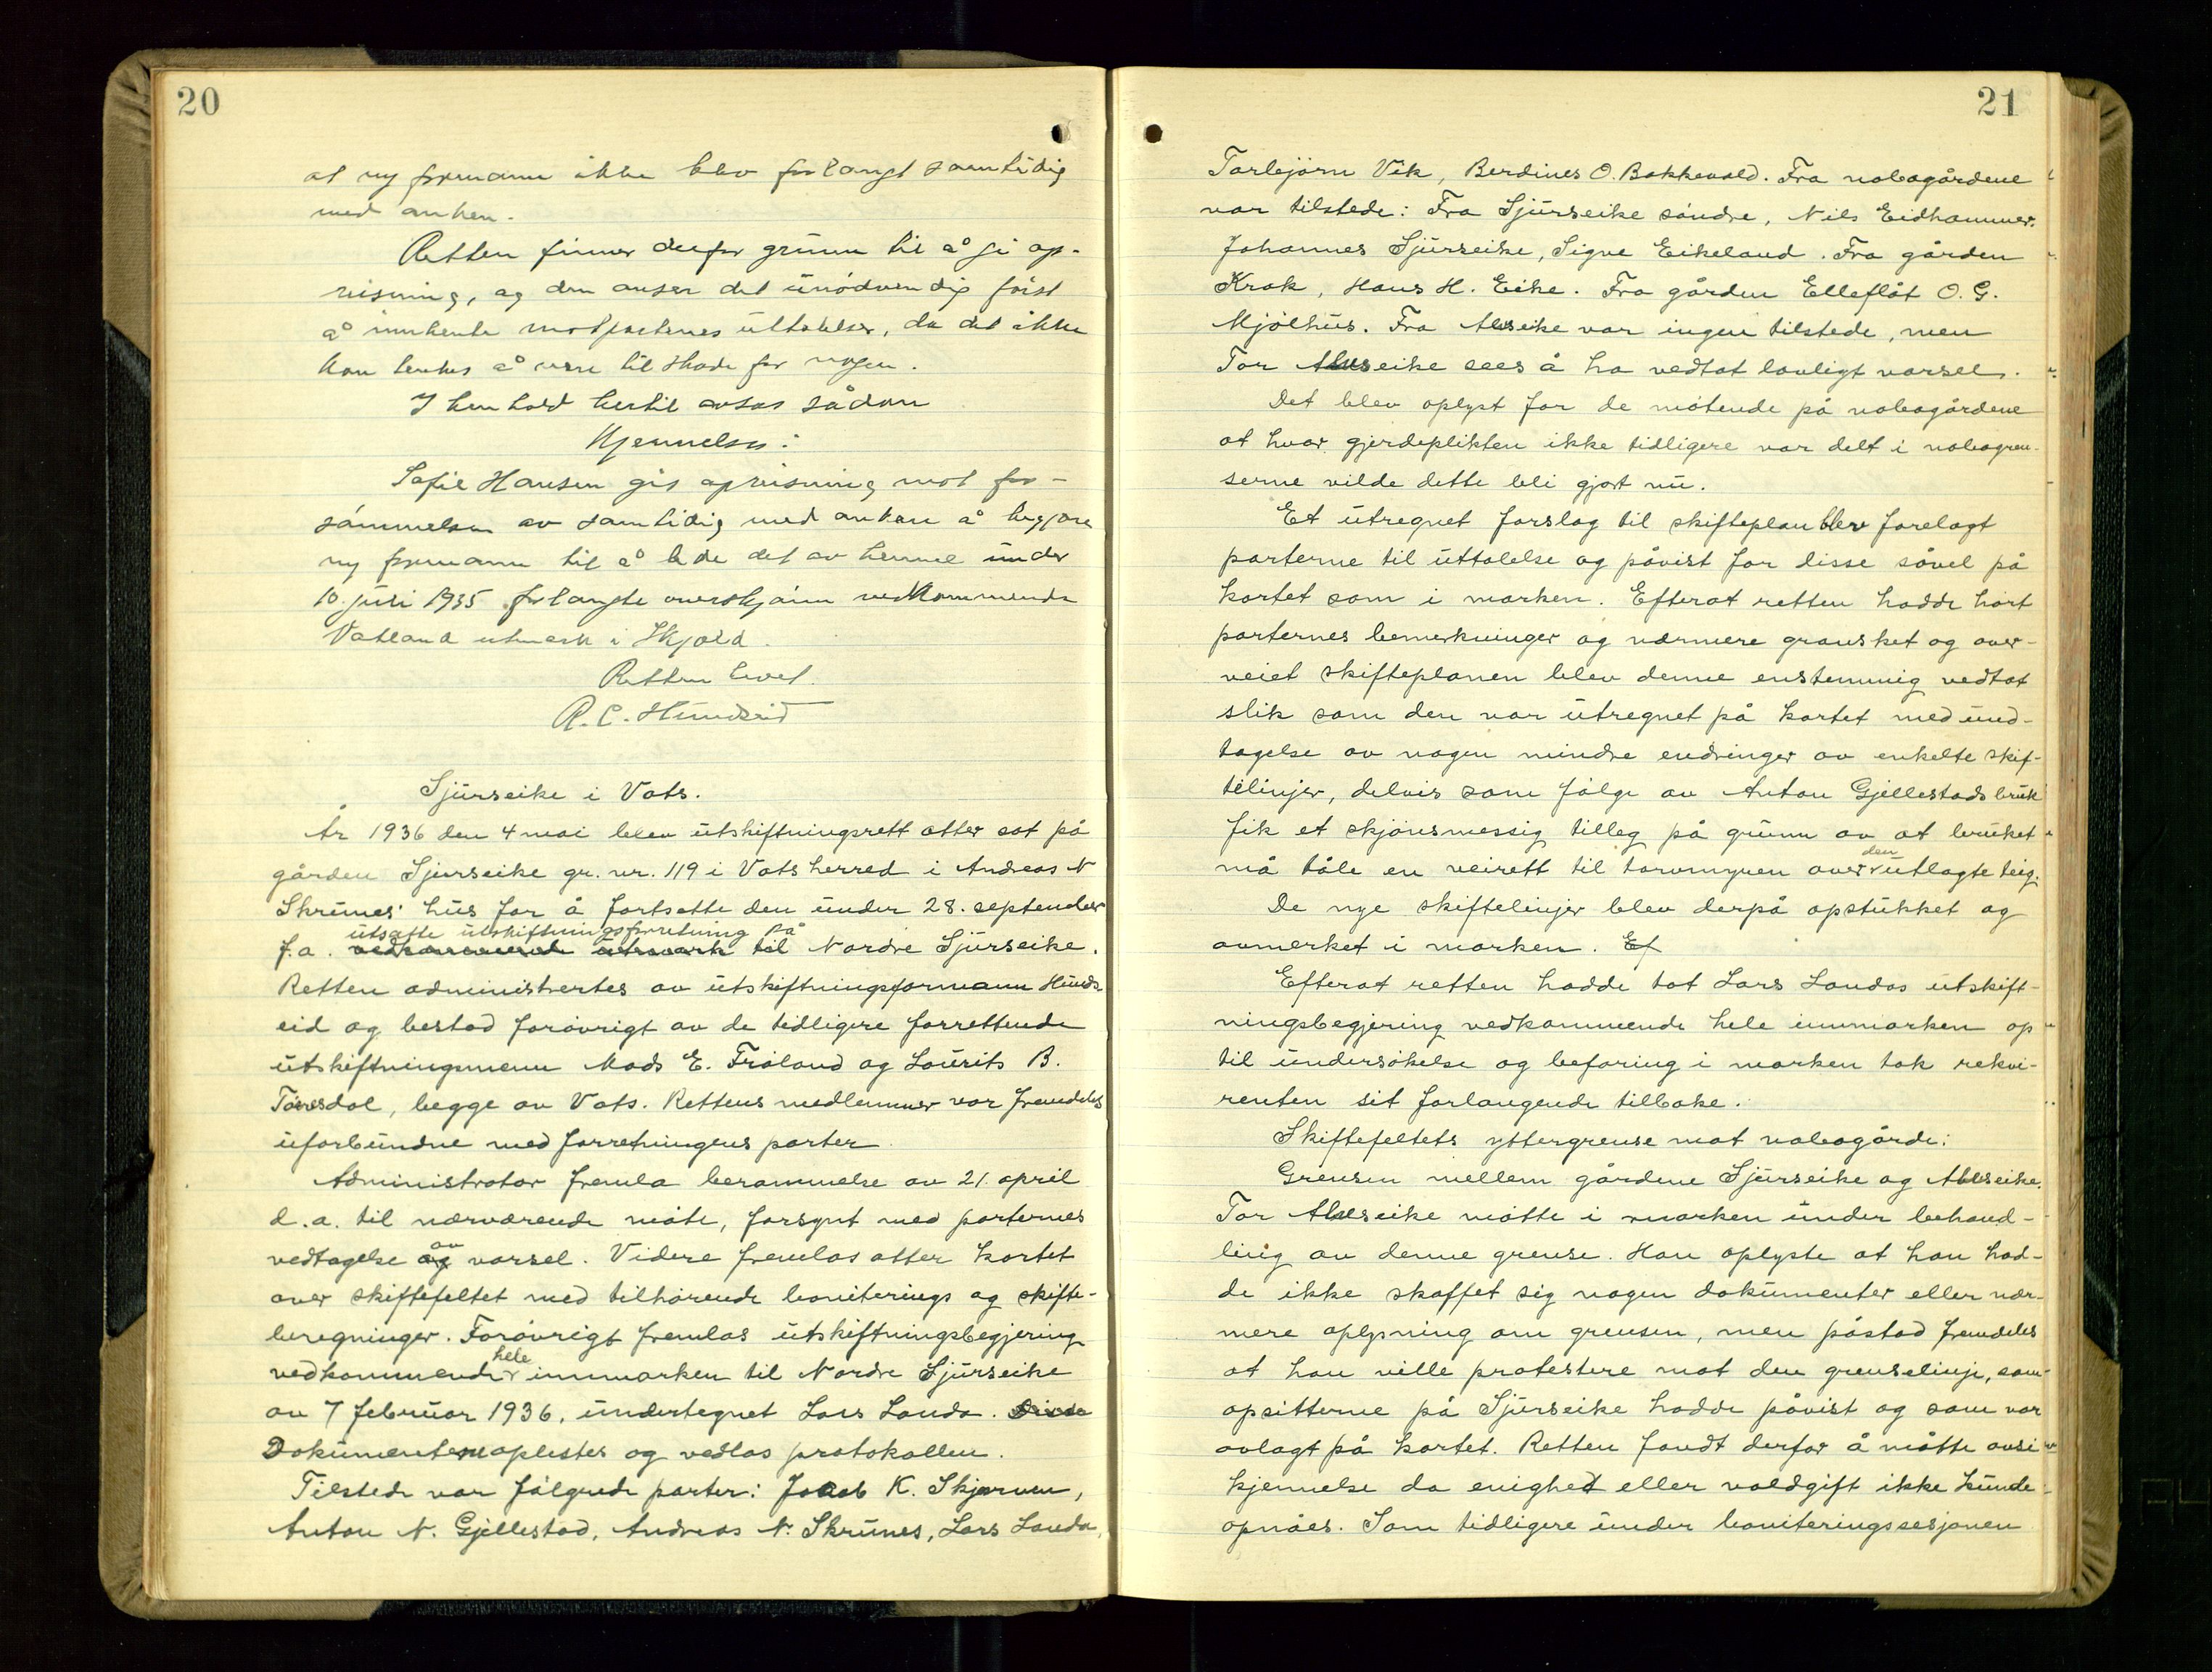 20
at ny formann ikke blev forlangt samtidig
med anken.
Retten finner derfor grunn til å gi op-
reisning, og den anser det unødvendig først
å innhente motpartenes uttalelser, da det ikke
kan tenkes å være til skade for nogen.
I henhold hertil avsas sådan
Kjennelse:
Sofie Hansen gis opreisning mot for-
sømmelsen av samtidig med anken å begjære
ny formann til å lede det av henne under
10. juli 1935 forlangte overskjønn vedkommende
Vatland utmark i Skjold.
Retten hevet.
R. C. Hundseid
Sjurseike i Vats.
År 1936 den 4 mai blev utskiftningsrett atter sat på
gården Sjurseike gr. nr. 119 i Vats herred i Andreas N
Skrunes' hus for å fortsette den under 28. september
utsatte utskiftningsforretning på
f.a. vedkommende utmark til Nordre Sjurseike.
Retten administrertes av utskiftningsformann Hunds-
eid og bestod forøvrigt av de tidligere forrettende
utskiftningsmenn Mads E. Frøland og Laurits B.
Tøresdal, begge av Vats. Rettens medlemmer var fremdeles
uforbundne med forretningens parter.
Administrator fremla berammelse av 21. april
d.a. til nærværende møte, forsynt med parternes
vedtagelse og av varsel. Videre fremlas atter kartet
over skiftefeltet med tilhørende boniterings og skifte-
beregninger. Forøvrigt fremlas utskiftningsbegjering
vedkommende hele innmarken til Nordre Sjurseike
av 7 februar 1936, undertegnet Lars Landa. Disse
Dokumentene oplestes og vedlas protokollen.
Tilstede var følgende parter: Jacob K. Skjerven,
Anton N. Gjellestad, Andreas N. Skrunes, Lars Landa,
21
Torbjørn Vik, Berdines O. Bakkevold. Fra nabogårdene
var tilstede: Fra Sjurseike søndre, Nils Eidhammer.
Johannes Sjurseike, Signe Eikeland. Fra gården
Krak, Hans H. Eike. Fra gården Elleflåt O. G.
Mjølhus. Fra Alvseike var ingen tilstede, men
Tor Alvseike sees å ha vedtat lovligt varsel.
Det blev oplyst for de møtende på nabogårdene
at hvor gjerdeplikten ikke tidligere var delt i nabogren-
serne vilde dette bli gjort nu.
Et utregnet forslag til skifteplan blev forelagt
parterne til uttalelse og påvist for disse såvel på
kartet som i marken. Efterat retten hadde hørt
parternes bemerkninger og nærmere gransket og over-
veiet skifteplanen blev denne enstemmig vedtat
slik som den var utregnet på kartet med und-
tagelse av nogen mindre endringer av enkelte skif-
telinjer, delvis som følge av Anton Gjellestads bruk
fik et skjønsmessig tilleg på grunn av at bruket
må tåle en veirett til torvmyren over den utlagte teig.
De nye skiftelinjer blev derpå opstukket og
avmerket i marken. Ef
Efterat retten hadde tat Lars Landas utskift-
ningsbegjering vedkommende hele innmarken op
til undersøkelse og befaring i marken tok rekvi-
renten sit forlangende tilbake.
Skiftefeltets yttergrense mot nabogårde:
Grensen mellem gårdene Sjurseike og Alvseike.
Tor Alvseike møtte i marken under behand-
ling av denne grense. Han oplyste at han had-
de ikke skaffet sig nogen dokumenter eller nær-
mere oplysning om grensen, men påstod fremdeles
at han ville protestere mot den grenselinje, som
opsitterne på Sjurseike hadde påvist og som var
avlagt på kartet. Retten fandt derfor å måtte avsi
kjennelse da enighed eller voldgift ikke kunde
opnåes. Som tidligere under boniteringssesjonen